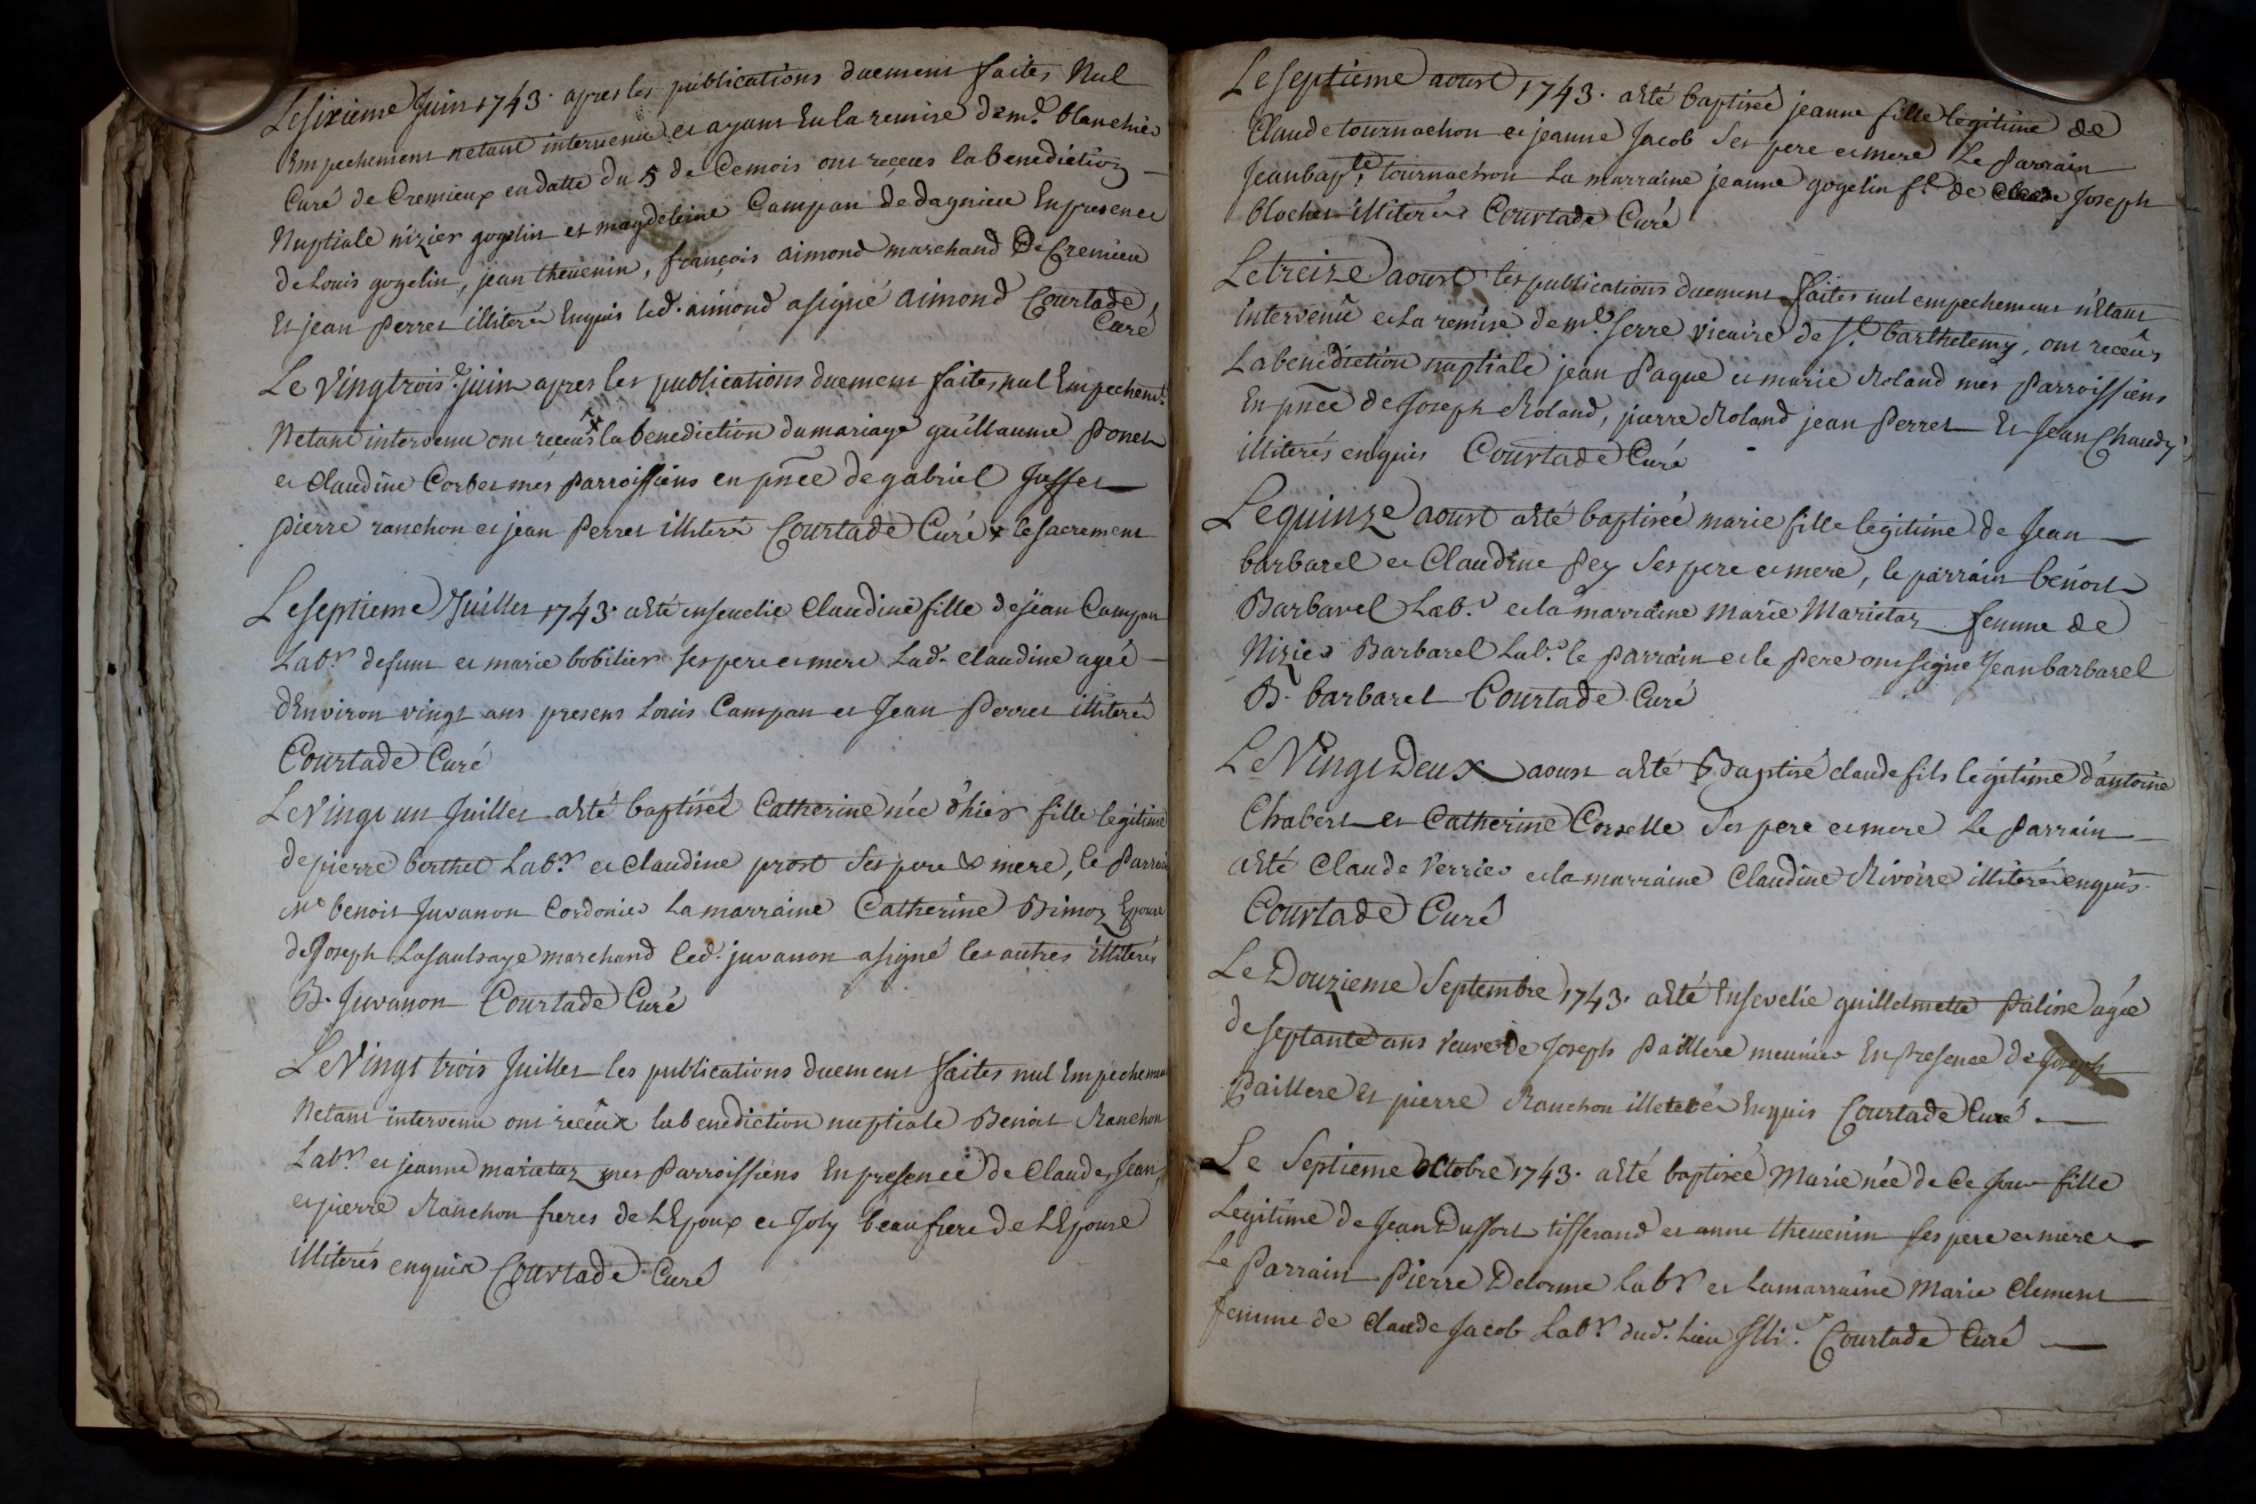 Le sixieme Juin 1743. apres les publications duement faites Nul
Empechement netant intervenu et ayant Eu la remise de mr. blanchier
Curé de Cremieux en datte du 5 de Cemois ont receus la benediction
Nuptiale nizier gogelin et magdeleine Campan de dagnieu En presence
de Louis gogelin, jean thevenin, françois aimond marchand De Cremieu
Et jean Perret illiterés Enquis led. aimond a signé aimond Courtade
Curé
Le Vingtrois.e juin apres les publications duement faites nul Empechemt.
Netant intervenu ont receus x la benediction du mariage guillaume Ponet
et Claudine Corbet mes Parroissiens en pnce de gabriel Juffet
pierre ranchon et jean Perret illiterés Courtade Curé x le sacrement
Le septieme Juillet 1743. a Eté ensevelie Claudine fille de jean Campan
Labr. defunt et marie bobilier ses pere et mere Lad. claudine ageé
dEnviron vingt ans presens Louis Campan et Jean Perret illiterés
Courtade Curé
Le Vingt un Juillet a Eté baptiseé Catherine née d'hier fille legitime
de pierre berthet Labr. et Claudine prost ses pere & mere, le Parrain
Me benoit Juvanon Cordonier La marraine Catherine Bimoz Epouse
de Joseph Lasaulsaye marchand led. juvanon a signé les autres illiterés
B. Juvanon Courtade Curé
Le Vingt trois Juillet les publications duement faites nul Empechement
Netant intervenu ont receux la benediction nuptiale Benoit Ranchon
Labr. et jeanne marietaz mes Parroissiens En presence de Claude, Jean,
et pierre Ranchon freres de LEpoux et Joly beaufrere de LEpouse
illiterés enquis Courtade Curé
Le septieme aoust 1743. a Eté baptiseé jeanne fille legitime de
Claude tournachon et jeanne Jacob Ses pere et mere Le Parrain
Jean bapte. tournachon La marraine jeanne gogelin fe. de Joseph
blochet illiterés Courtade Curé
Le treize aoust les publications duement faites nul empechement n'Etant
intervenû et La remise de mr. serre vicaire de St. barthelemy, ont receûs
La benediction nuptiale jean Paque et marie Roland mes Parroissiens
En pnce de Joseph Roland, pierre Roland jean Perret Et Jean Chaudy
illiterés enquis Courtade Curé
Le quinze aoust a Eté baptiseé marie fille legitime de Jean
barbarel et Claudine Pey Ses pere et mere, le parrain benoit
Barbarel Labr. et la marraine Marie Marietaz femme de
Nizier Barbarel Labr. le Parrain et le Pere ont signe Jean barbarel
B. barbaret Courtade Curé
Le Vingt Deux aoust a Eté Baptisé claude fils legitime d'antoine
Chabert et Catherine Corselle Ses pere et mere Le Parrain
a Eté Claude Verrier et la marraine Claudine Rivoire illiterés enquis.
Courtade Curé
Le Douzieme Septembre 1743. a Eté Ensevelie guillelmette Paline agée
de septante ans veuve de Joseph Paillere meunier En presence de Joseph
Paillere Et pierre Ranchon illeterés Enquis Courtade Curé
Le Septieme Octobre 1743. a Eté baptiseé Marie née de Ce Jour fille
Legitime de Jean Duffort tisserand et anne thevenin ses pere et mere
Le Parrain Pierre Delorme Labr. et La marraine Marie Clement
femme de Claude Jacob Labr. dud. Lieu Illi.r Courtade Curé